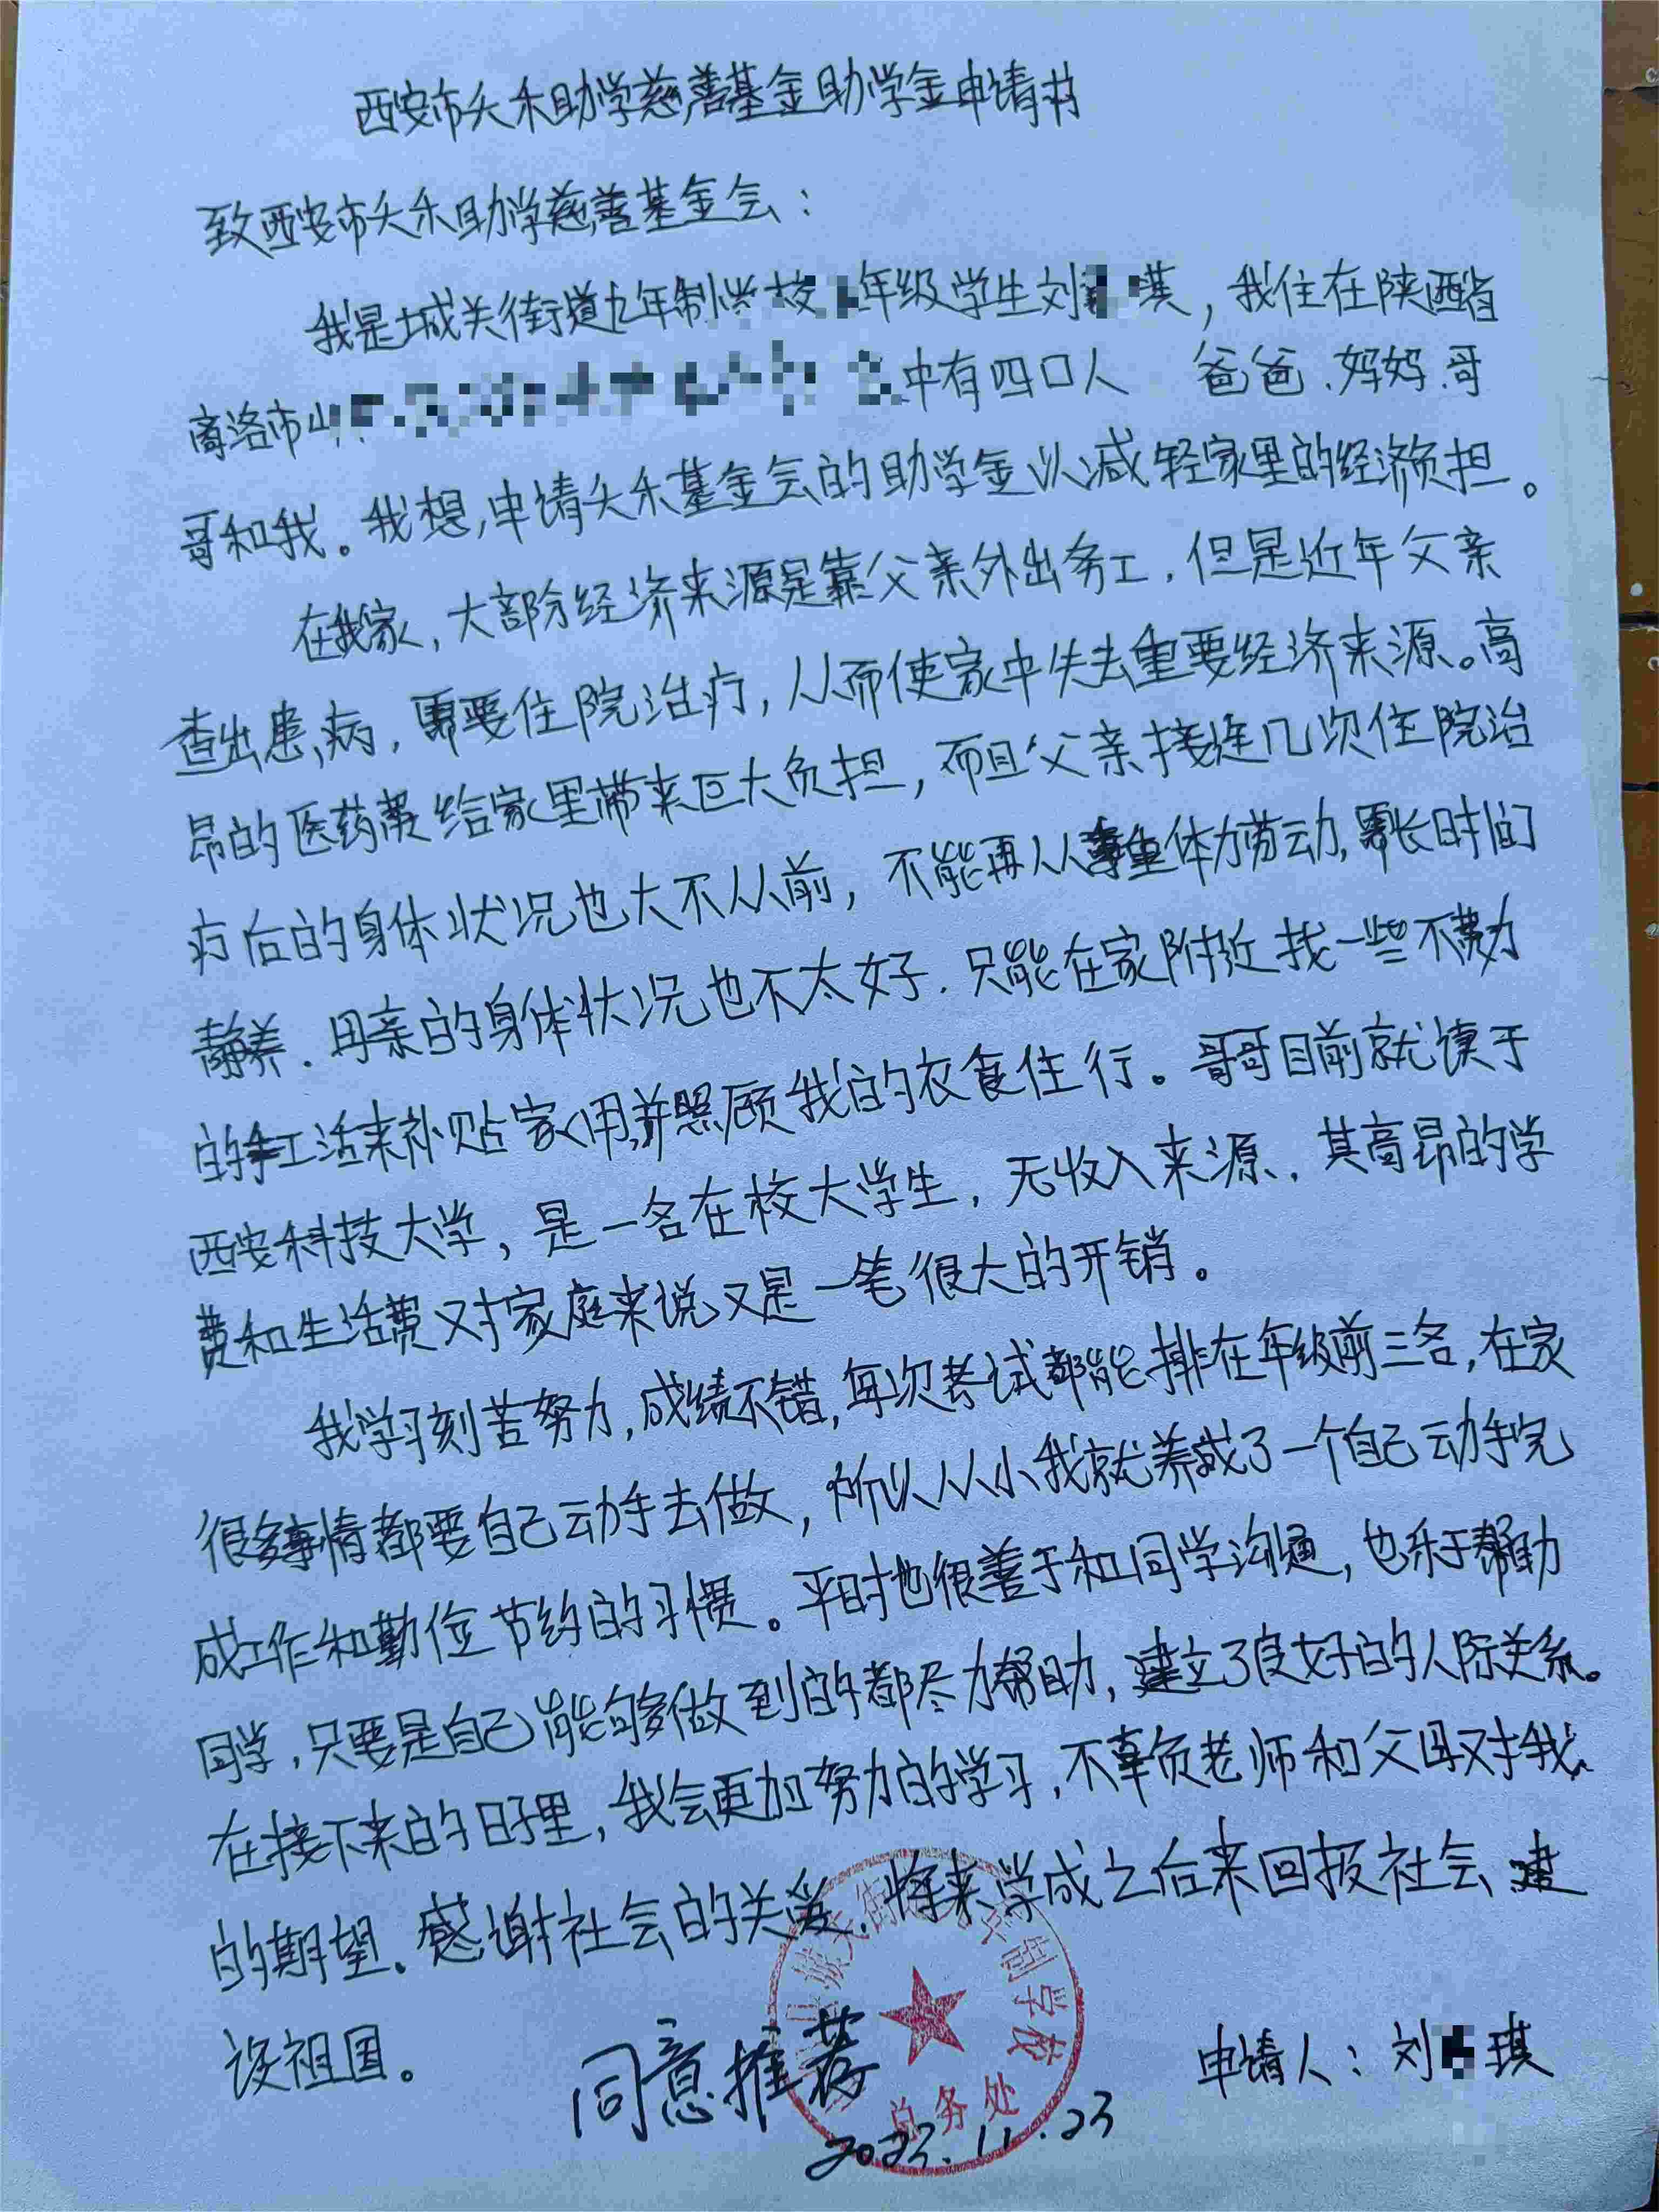 西安市头禾助学慈善基金助学金申请书
致西安市头禾助学慈善基金会：
我是城关街道九年制学校年级学生刘琪，我住在陕西省
商洛市山中有四口人 爸爸、妈妈、哥
哥和我。我想，申请头禾基金会的助学金以减轻家里的经济负担。
在我家，大部分经济来源是靠父亲外出务工，但是近年父亲
查出患病，需要住院治疗，从而使家中失去重要经济来源。高
昂的医药费给家里带来巨大负担，而且父亲接连几次住院治
疗后的身体状况也大不从前，不能再从事重体力劳动，需长时间
静养。母亲的身体状况也不太好，只能在家附近找一些不费力
的手工活来补贴家用，并照顾我的衣食住行。哥哥目前就读于
西安科技大学，是一名在校大学生，无收入来源，其高昂的学
费和生活费对家庭来说又是一笔很大的开销。
我学习刻苦努力，成绩不错，每次考试都能排在年级前三名，在家
很多事情都要自己动手去做，所以从小我就养成了一个自己动手完
成工作和勤俭节约的习惯。平时也很善于和同学沟通，也乐于帮助
同学，只要是自己能够做到的都尽力帮助，建立了良好的人际关系。
在接下来的日子里，我会更加努力的学习，不辜负老师和父母对我
的期望。感谢社会的关爱，将来学成之后来回报社会、建
设祖国。
同意推荐
申请人：刘琪
2023.11.23
城关街制学校
总务处